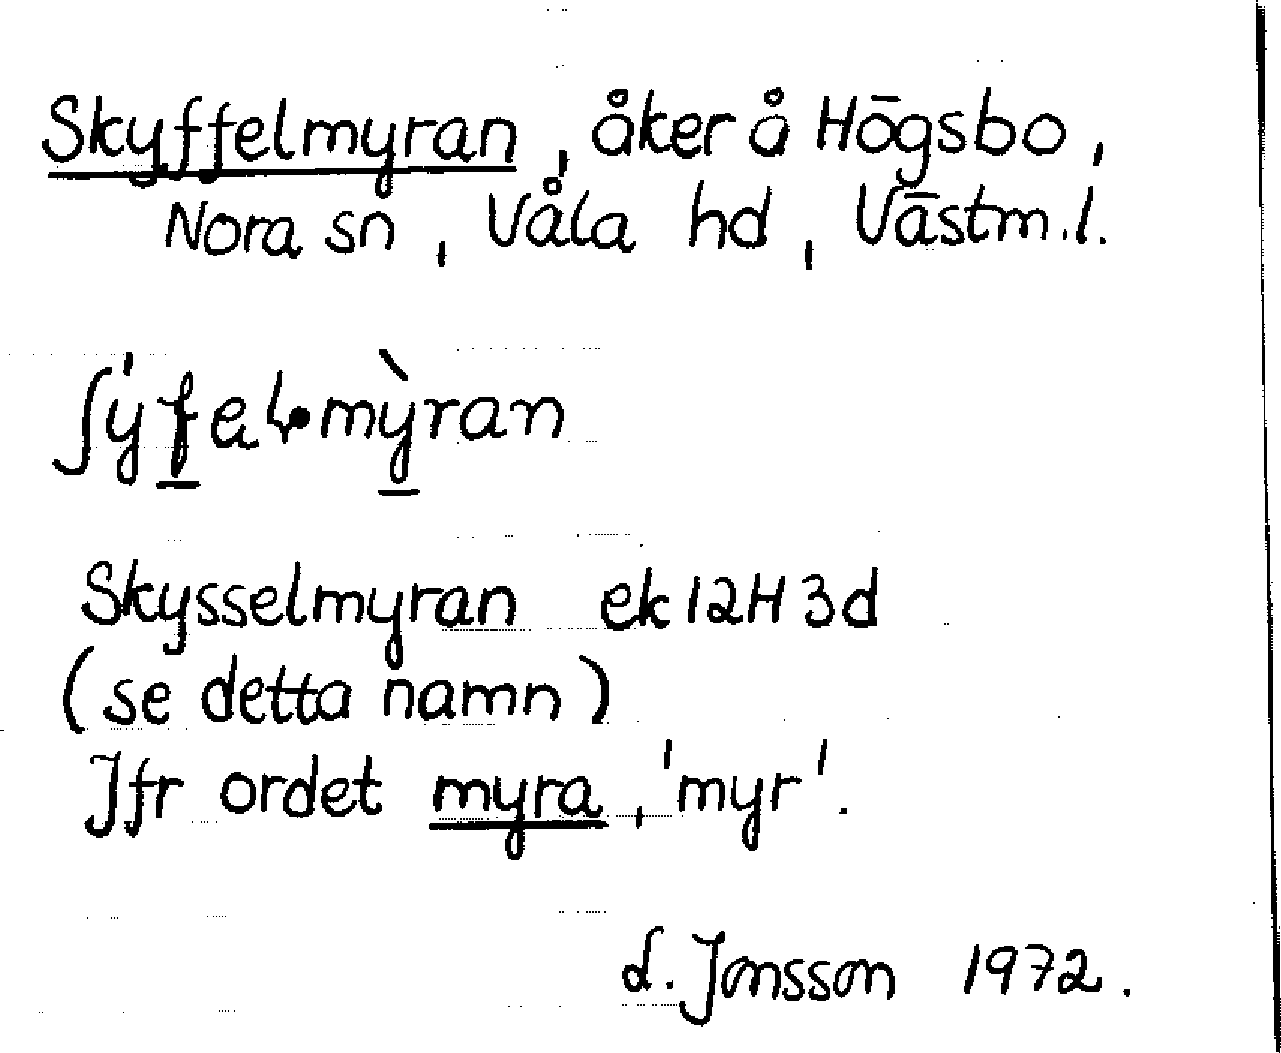 Skyffelmyran, åker å Högsbo,
Nora sn, Våla hd, Västm.l.
Skysselmyran ek 12H 3d
(se detta namn)
Jfr ordet myra, 'myr'.
Jonsson 1972.